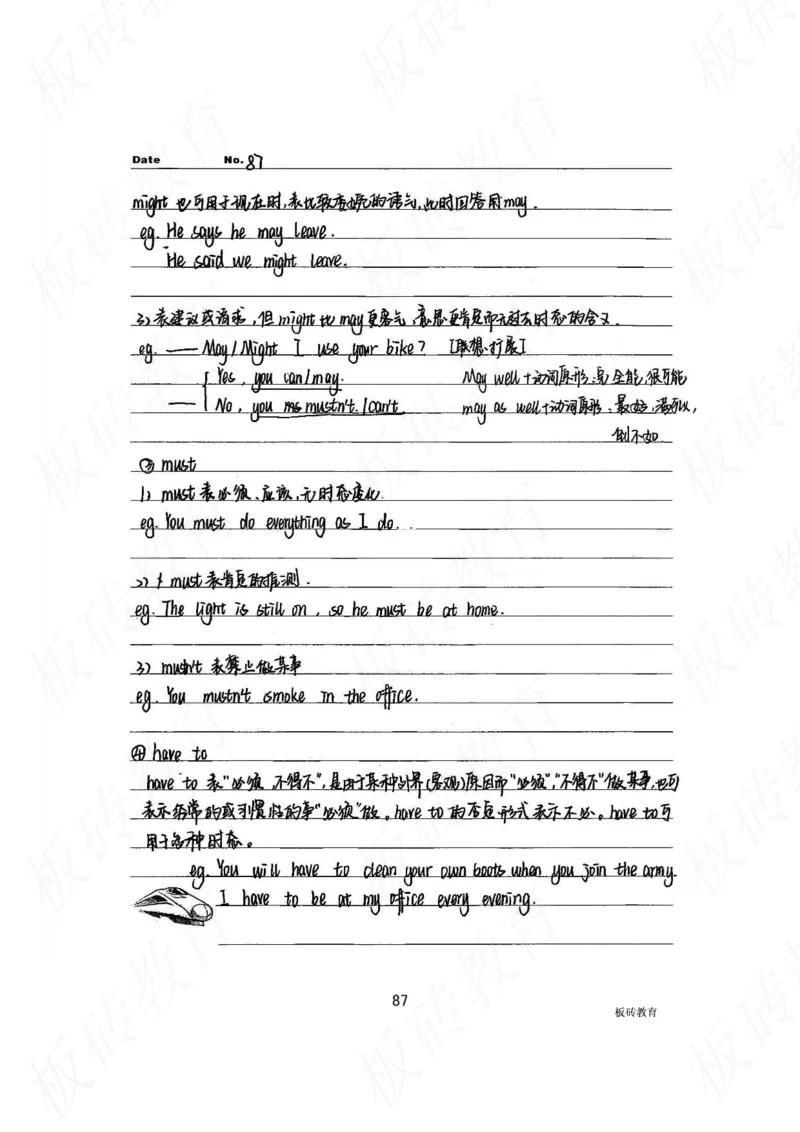 Date No. 87
might 也可用于现在时,表比较委婉的语气,此时回答用may.
eg. He says he may leave.
He said we might leave.
2) 表建议或请求,但might比may更客气,意思更肯定而无过去时态的含义.
eg. —— May/Might I use your bike? [联想扩展]
Yes, you can/may. May well+动词原形:完全能,很可能
—— No, you mustn't./can't. may as well+动词原形:最好,满可以,
倒不如.
③ must
1) must表必须、应该,无时态变化.
eg. You must do everything as I do.
2) must表肯定的推测.
eg. The light is still on, so he must be at home.
3) mustn't 表禁止做某事
eg. You mustn't smoke in the office.
④ have to
have to 表"必须,不得不",是由于某种外界(客观)原因而"必须","不得不"做某事,也可
表示经常的或习惯性的事"必须"做。have to 的否定形式表示不必。have to可
用于各种时态。
eg. You will have to clean your own boots when you join the army.
I have to be at my office every evening.
87
板砖教育